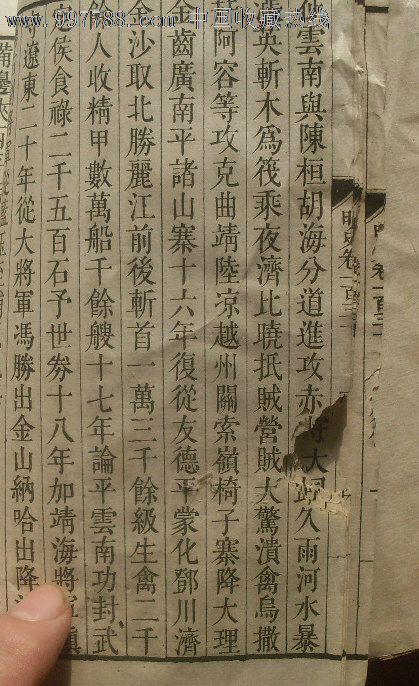 明史卷一百三
雲南與陳桓胡海分道進攻赤
路久雨河水暴
英斬木爲筏乘夜濟比曉抵賊營賊大驚潰禽烏撒
阿容等攻克曲靖陸凉越州關索嶺椅子寨降大理
金齒廣南平諸山寨十六年復從友德平蒙化鄧川濟
金沙取北勝麗江前後斬首一萬三千餘級生禽二千
餘人收精甲數萬船千餘艘十七年論平雲南功封武
定侯食祿二千五百石予世劵十八年加靖海將軍鎮
守遼東二十年從大將軍馮勝出金山納哈出降
備邊
www.997788.com 中国收藏热线